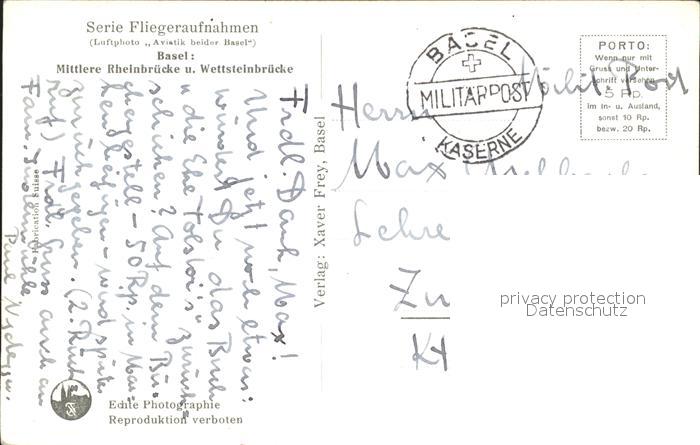 Serie Fliegeraufnahmen
(Luftphoto „Aviatik beider Basel")
Basel:
Mittlere Rheinbrücke u. Wettsteinbrücke
Frdl. Dank, Max!
Und jetzt noch etwas:
würdest Du das Buch
"die Ehe Tolstoi's" zurück-
schicken? Auf dem Bü-
chergestell - 50 Rp. in Mar-
ken beifügen - wird später
zurückgegeben. (2. Rück-
ruf) Frdl. Gruss auch an
Fam.
Paul
Fabrication Suisse
Echte Photographie
Reproduktion verboten
Verlag: Xaver Frey, Basel
BASEL
MILITÄRPOST
KASERNE
Milit. Post
PORTO:
Wenn nur mit
Gruss und Unter-
schrift versehen
5 Rp.
im In- u. Ausland,
sonst 10 Rp.
bezw. 20 Rp.
Herrn
Max
Lehre
Zu
Kt
privacy protection
Datenschutz